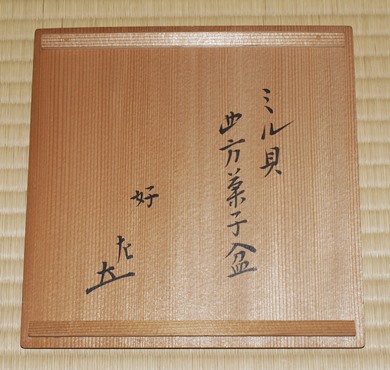 ミル貝
四方菓子盆
好